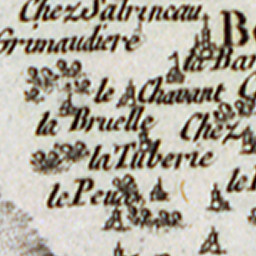 Chez Sabrineau
Grimaudiere
la Bar
le Chavant
la Bruelle
Chez
la Tuberie
le Peu